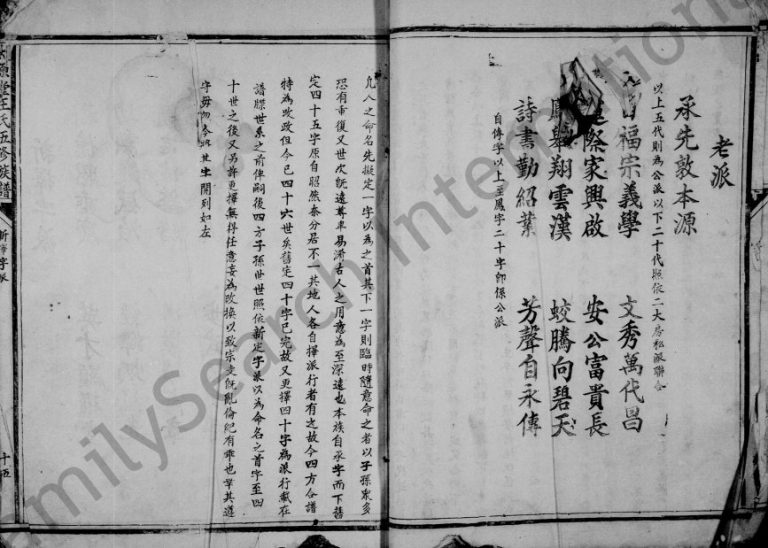 老派
承先敦本源
以上五代則為公派以下二十代照依二大房私派聯合
福宗義學 文秀萬代昌
際家興啟 安公富貴長
舉翔雲漢 蛟騰向碧天
詩書勤紹業 芳聲自永傳
自傳字以上至鳳字二十字即係公派
凡人之命名先擬定一字以為之首其下一字則臨時隨意命之者以子孫眾多
恐有重復又世次既遠尊卑易淆古人之用意為至深遠也本族自承字而下舊
定四十五字原自昭然奈分居不一其地人各自擇派行者有之故今四方合譜
特為改政但今已四十六世矣舊定四十字已完故又更擇四十字為派行載在
譜牒世系之前俾嗣後四方子孫世世照依新定字派以為命名之首字至四
十世之後又另許更擇無得任意妄為改換以致宗支既亂倫紀有乖也幸其遵
字毋忽今將其字開列如左
原堂王氏五修族譜 新擇字派 十五
FamilySearch International